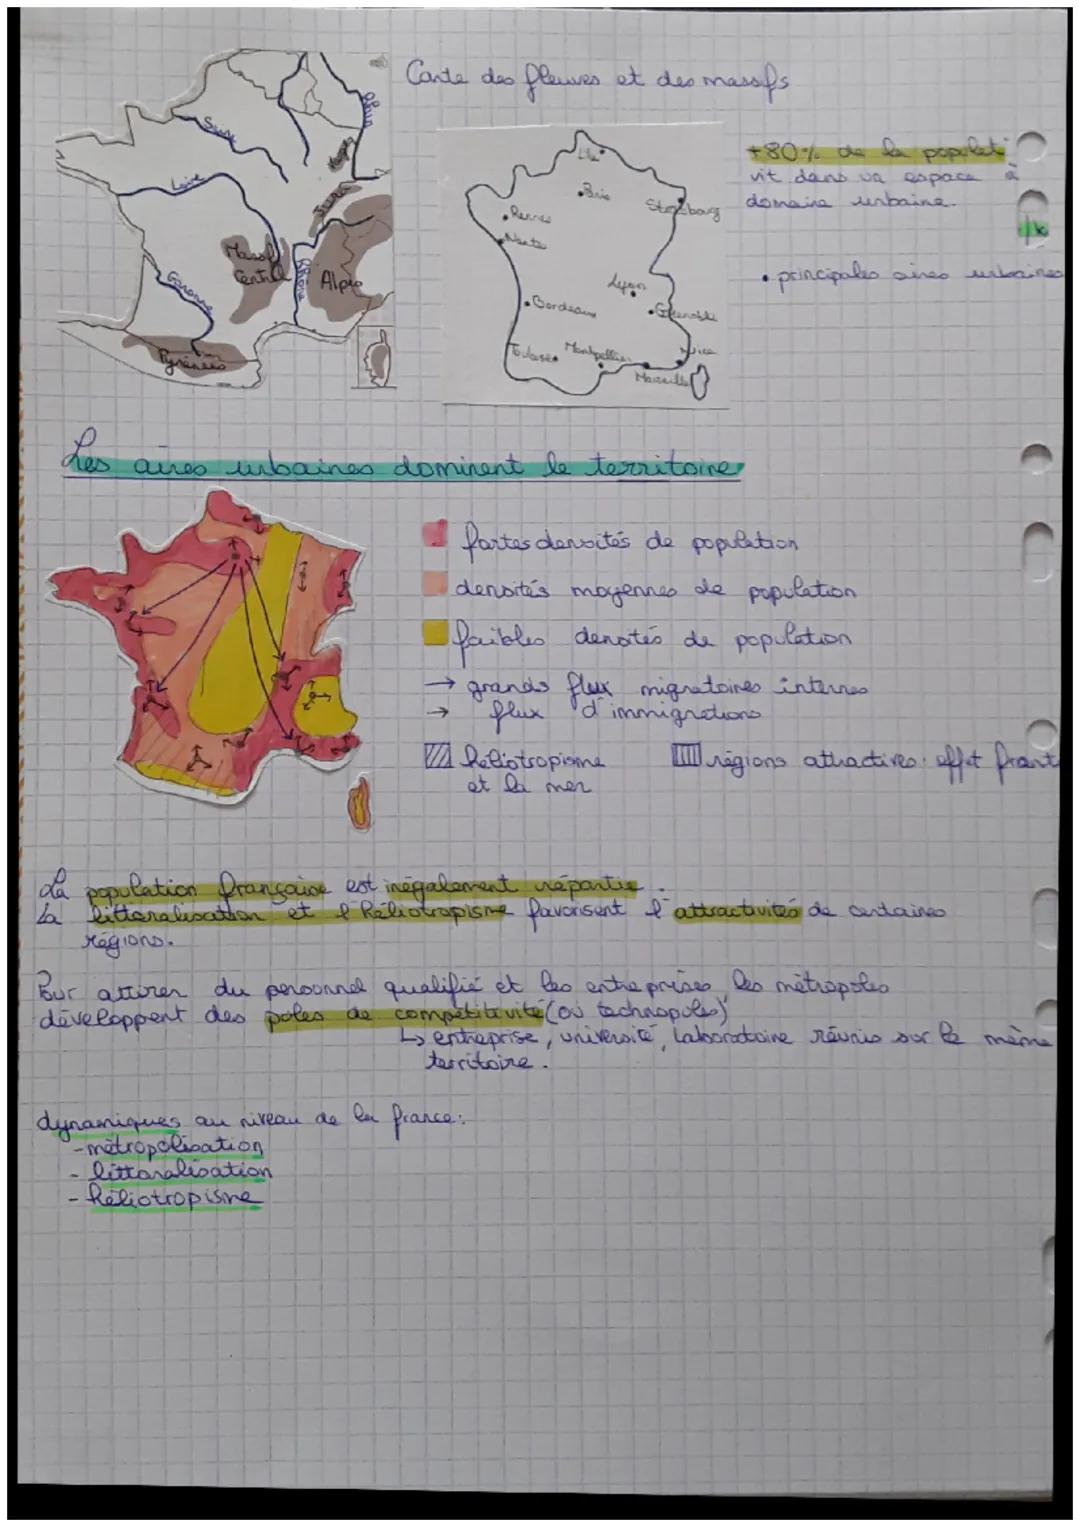 Carte des fleuves et des massifs
Rhin
Seine
Loire
Vosges
Jura
Massif
Central
Rhône
Alpes
Garonne
Pyrénées
Lille
Paris
Strasbourg
Rennes
Nantes
Lyon
Bordeaux
Grenoble
Toulouse
Montpellier
Nice
Marseille
+80% de la populat
vit dans un espace à
domaine urbaine.
• principales aires urbaines
Les aires urbaines dominent le territoire
fortes densités de population
densités moyennes de population
faibles densités de population
→ grands flux migratoires internes
→ flux d'immigrations
héliotropisme
et la mer
régions attractives: effet front
La population française est inégalement répartie.
La littoralisation et l'héliotropisme favorisent l'attractivités de certaines
régions.
Pour attirer du personnel qualifié et les entreprises, les métropoles
développent des poles de compétitivité (ou technopoles)
↳ entreprise, université, laboratoire réunis sur le même
territoire.
dynamiques au niveau de la france:
- métropolisation
- littoralisation
- héliotropisme